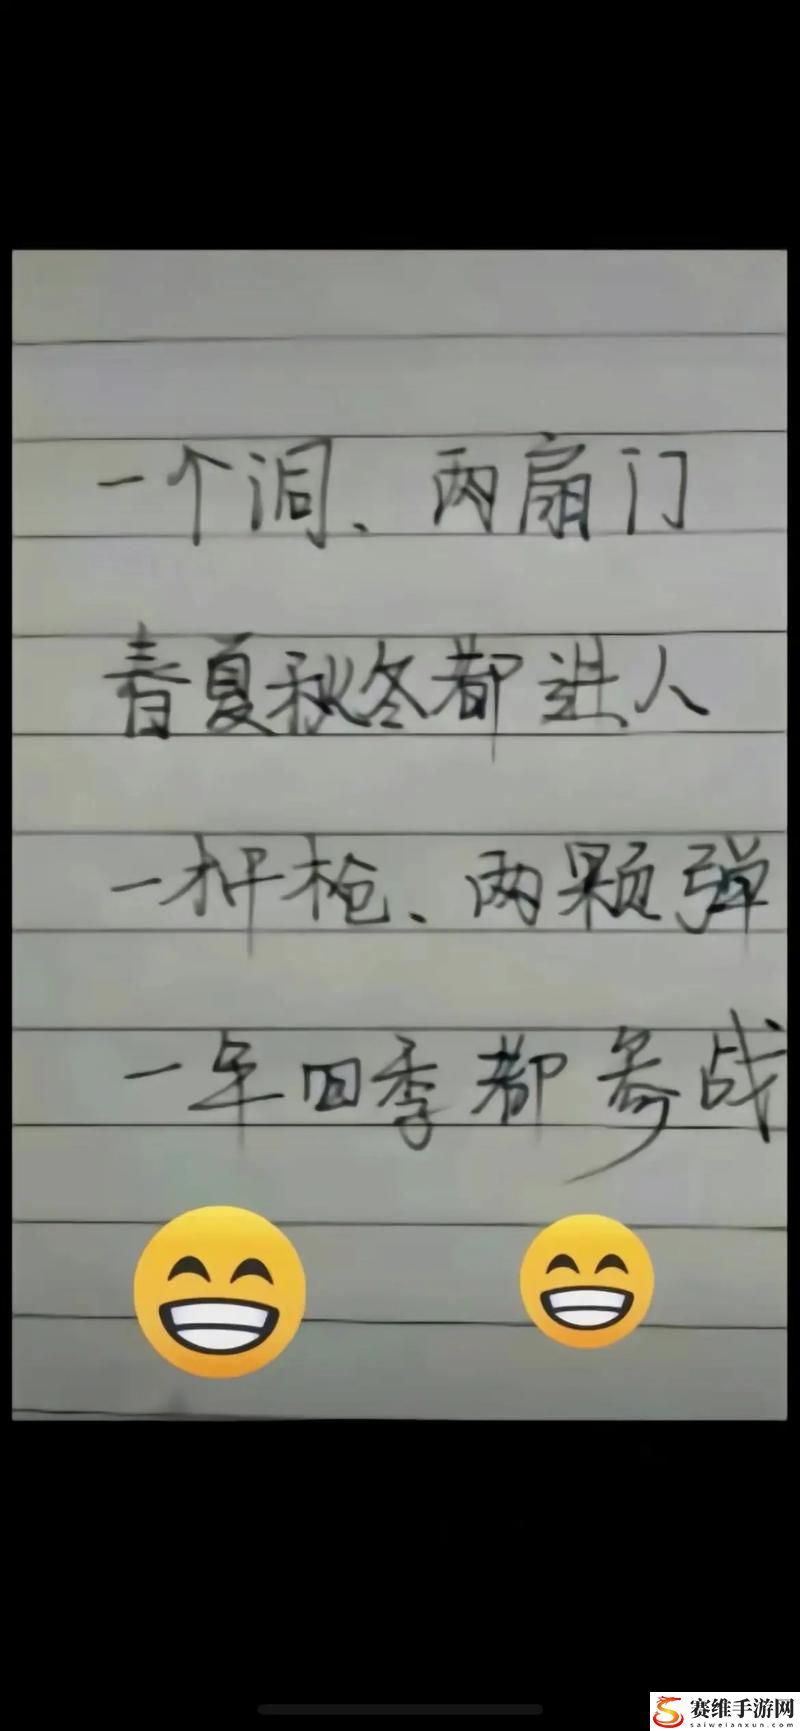 一个洞、两扇门
春夏秋冬都进人
一杆枪、两颗弹
一年四季都参战
赛维手游网
saiweianxun.com